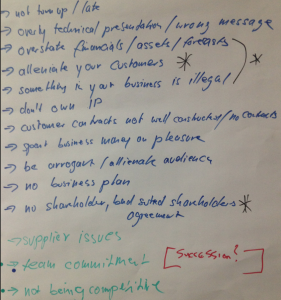 → not turn up / late
→ overly technical presentation / wrong message
→ overstate financials / assets / forecasts
→ alleniate your customers *
→ something in your business is illegal *
→ don't own IP
→ customer contracts not well constructed / no contracts
→ spent business money on pleasure
→ be arrogant / allienate audiency
→ no business plan
→ no shareholder, bad suited shareholders *
agreement
→ supplier issues
→ team commitment
[Succession?]
→ not being competitive